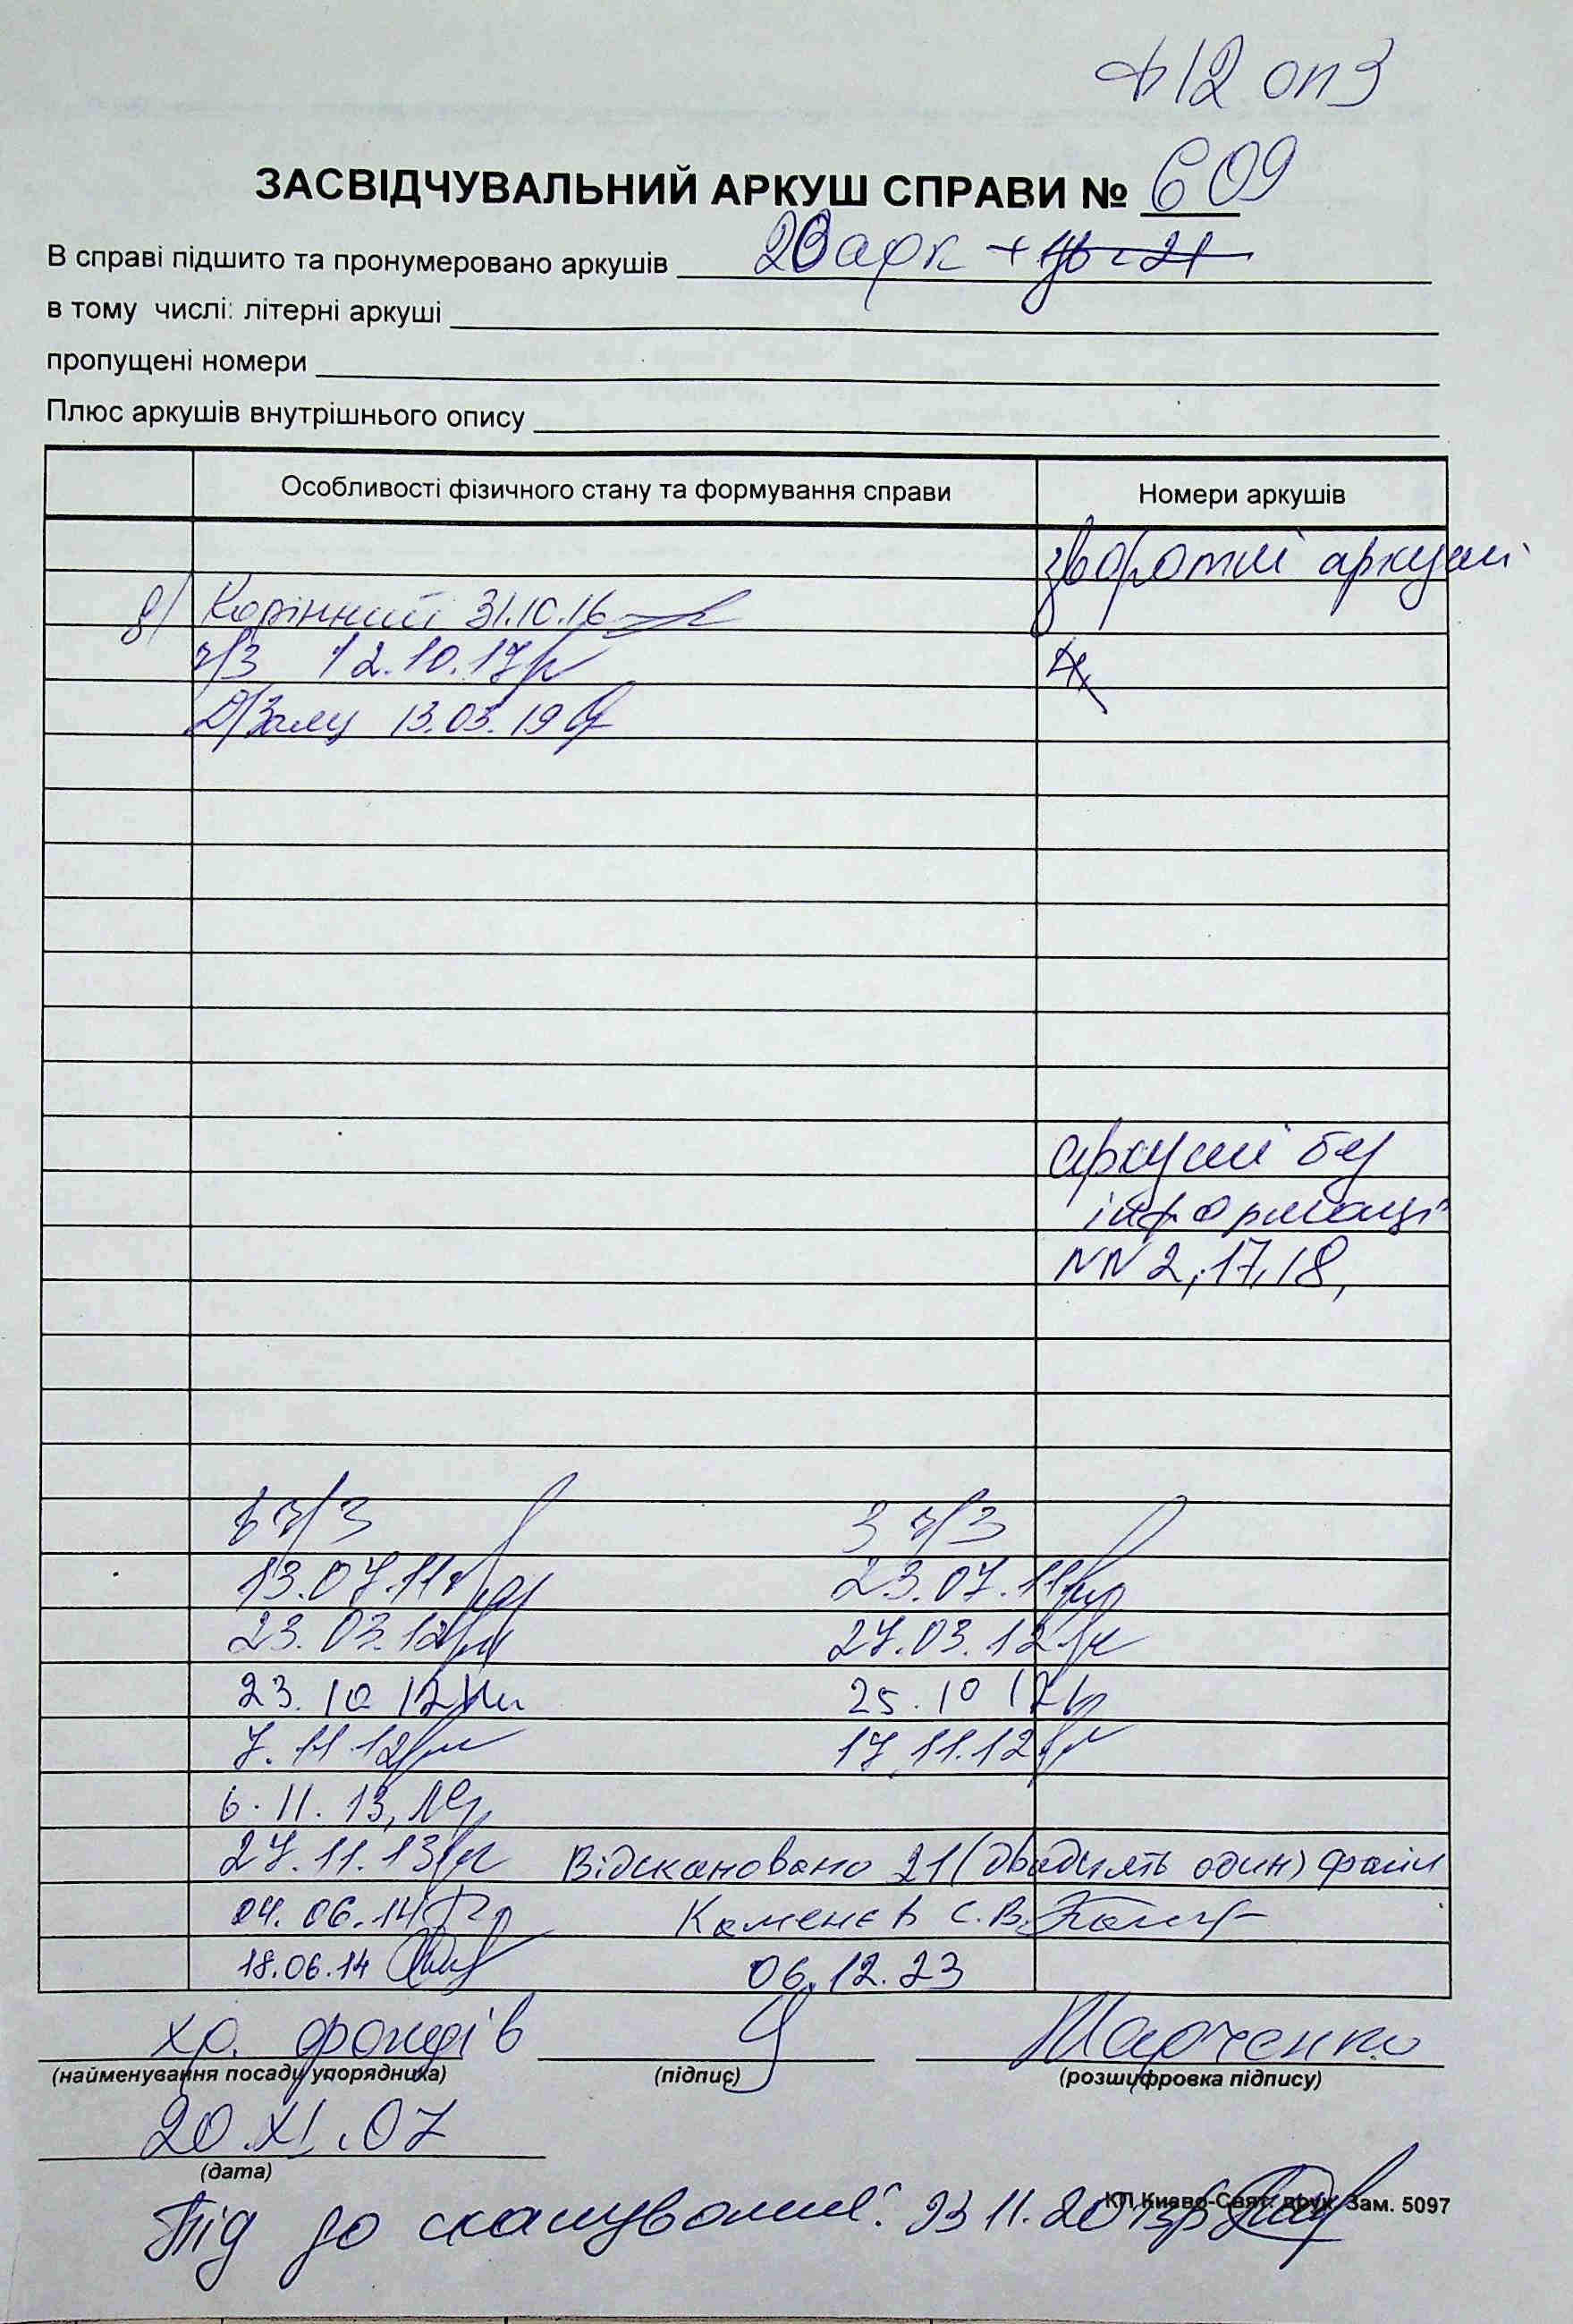 ф 12 оп 3
ЗАСВІДЧУВАЛЬНИЙ АРКУШ СПРАВИ № 609
В справі підшито та пронумеровано аркушів 20 арк +
в тому числі: літерні аркуші
пропущені номери
Плюс аркушів внутрішнього опису
Особливості фізичного стану та формування справи Номери аркушів
зворотні аркуші
в/ Корінний 31.10.16
ч/з 12.10.17
13.03.19
аркуші без
інформації
NN 2, 17, 18,
в ч/з З ч/з
13.07.11 23.07.11
23.03.12 27.03.12
23.10 12 25.10 12
7.11 12 17.11.12
6.11.13,
27.11.13 Відскановано 21 (двадцять один) файл
04.06.14 Каменєв С.В.
18.06.14 06.12.23
хр. фондів Марченко
(найменування посади упорядника) (підпис) (розшифровка підпису)
20.XI.07
(дата)
КП Києво-Свят. друк. Зам. 5097
Під до сканування: 23 11.2023р